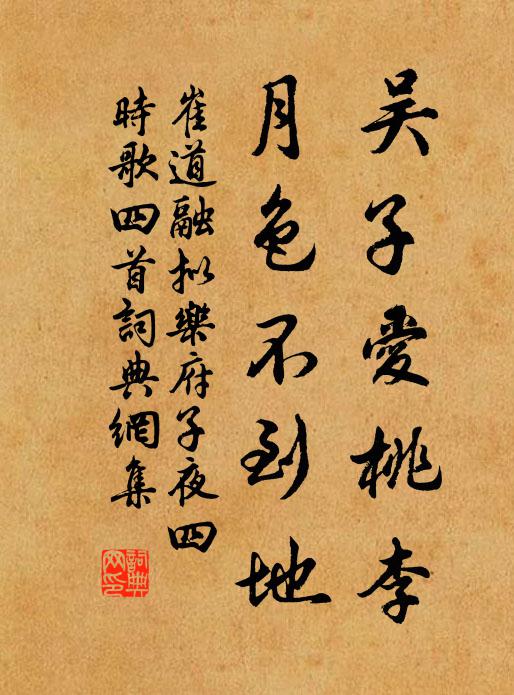 吴子愛桃李
月色不到地
崔道融拟樂府子夜四
時歌四首詞典網集
詞典
网印